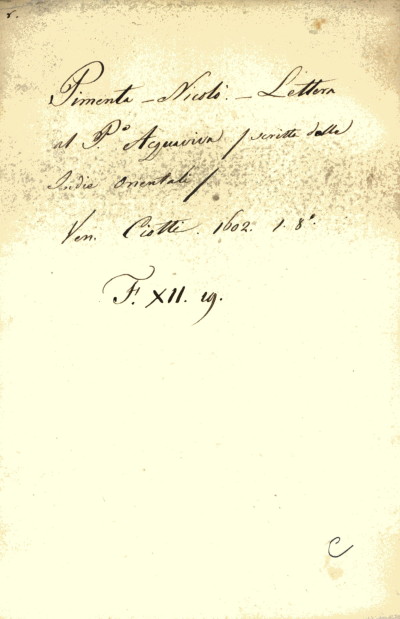 r.
Pimenta - Nicolò. - Lettera
al P.o Acquaviva / scritta dalle
Indie Orientali /
Ven. Ciotti. 1602. 1. 8°.
F. XII. 19.
C